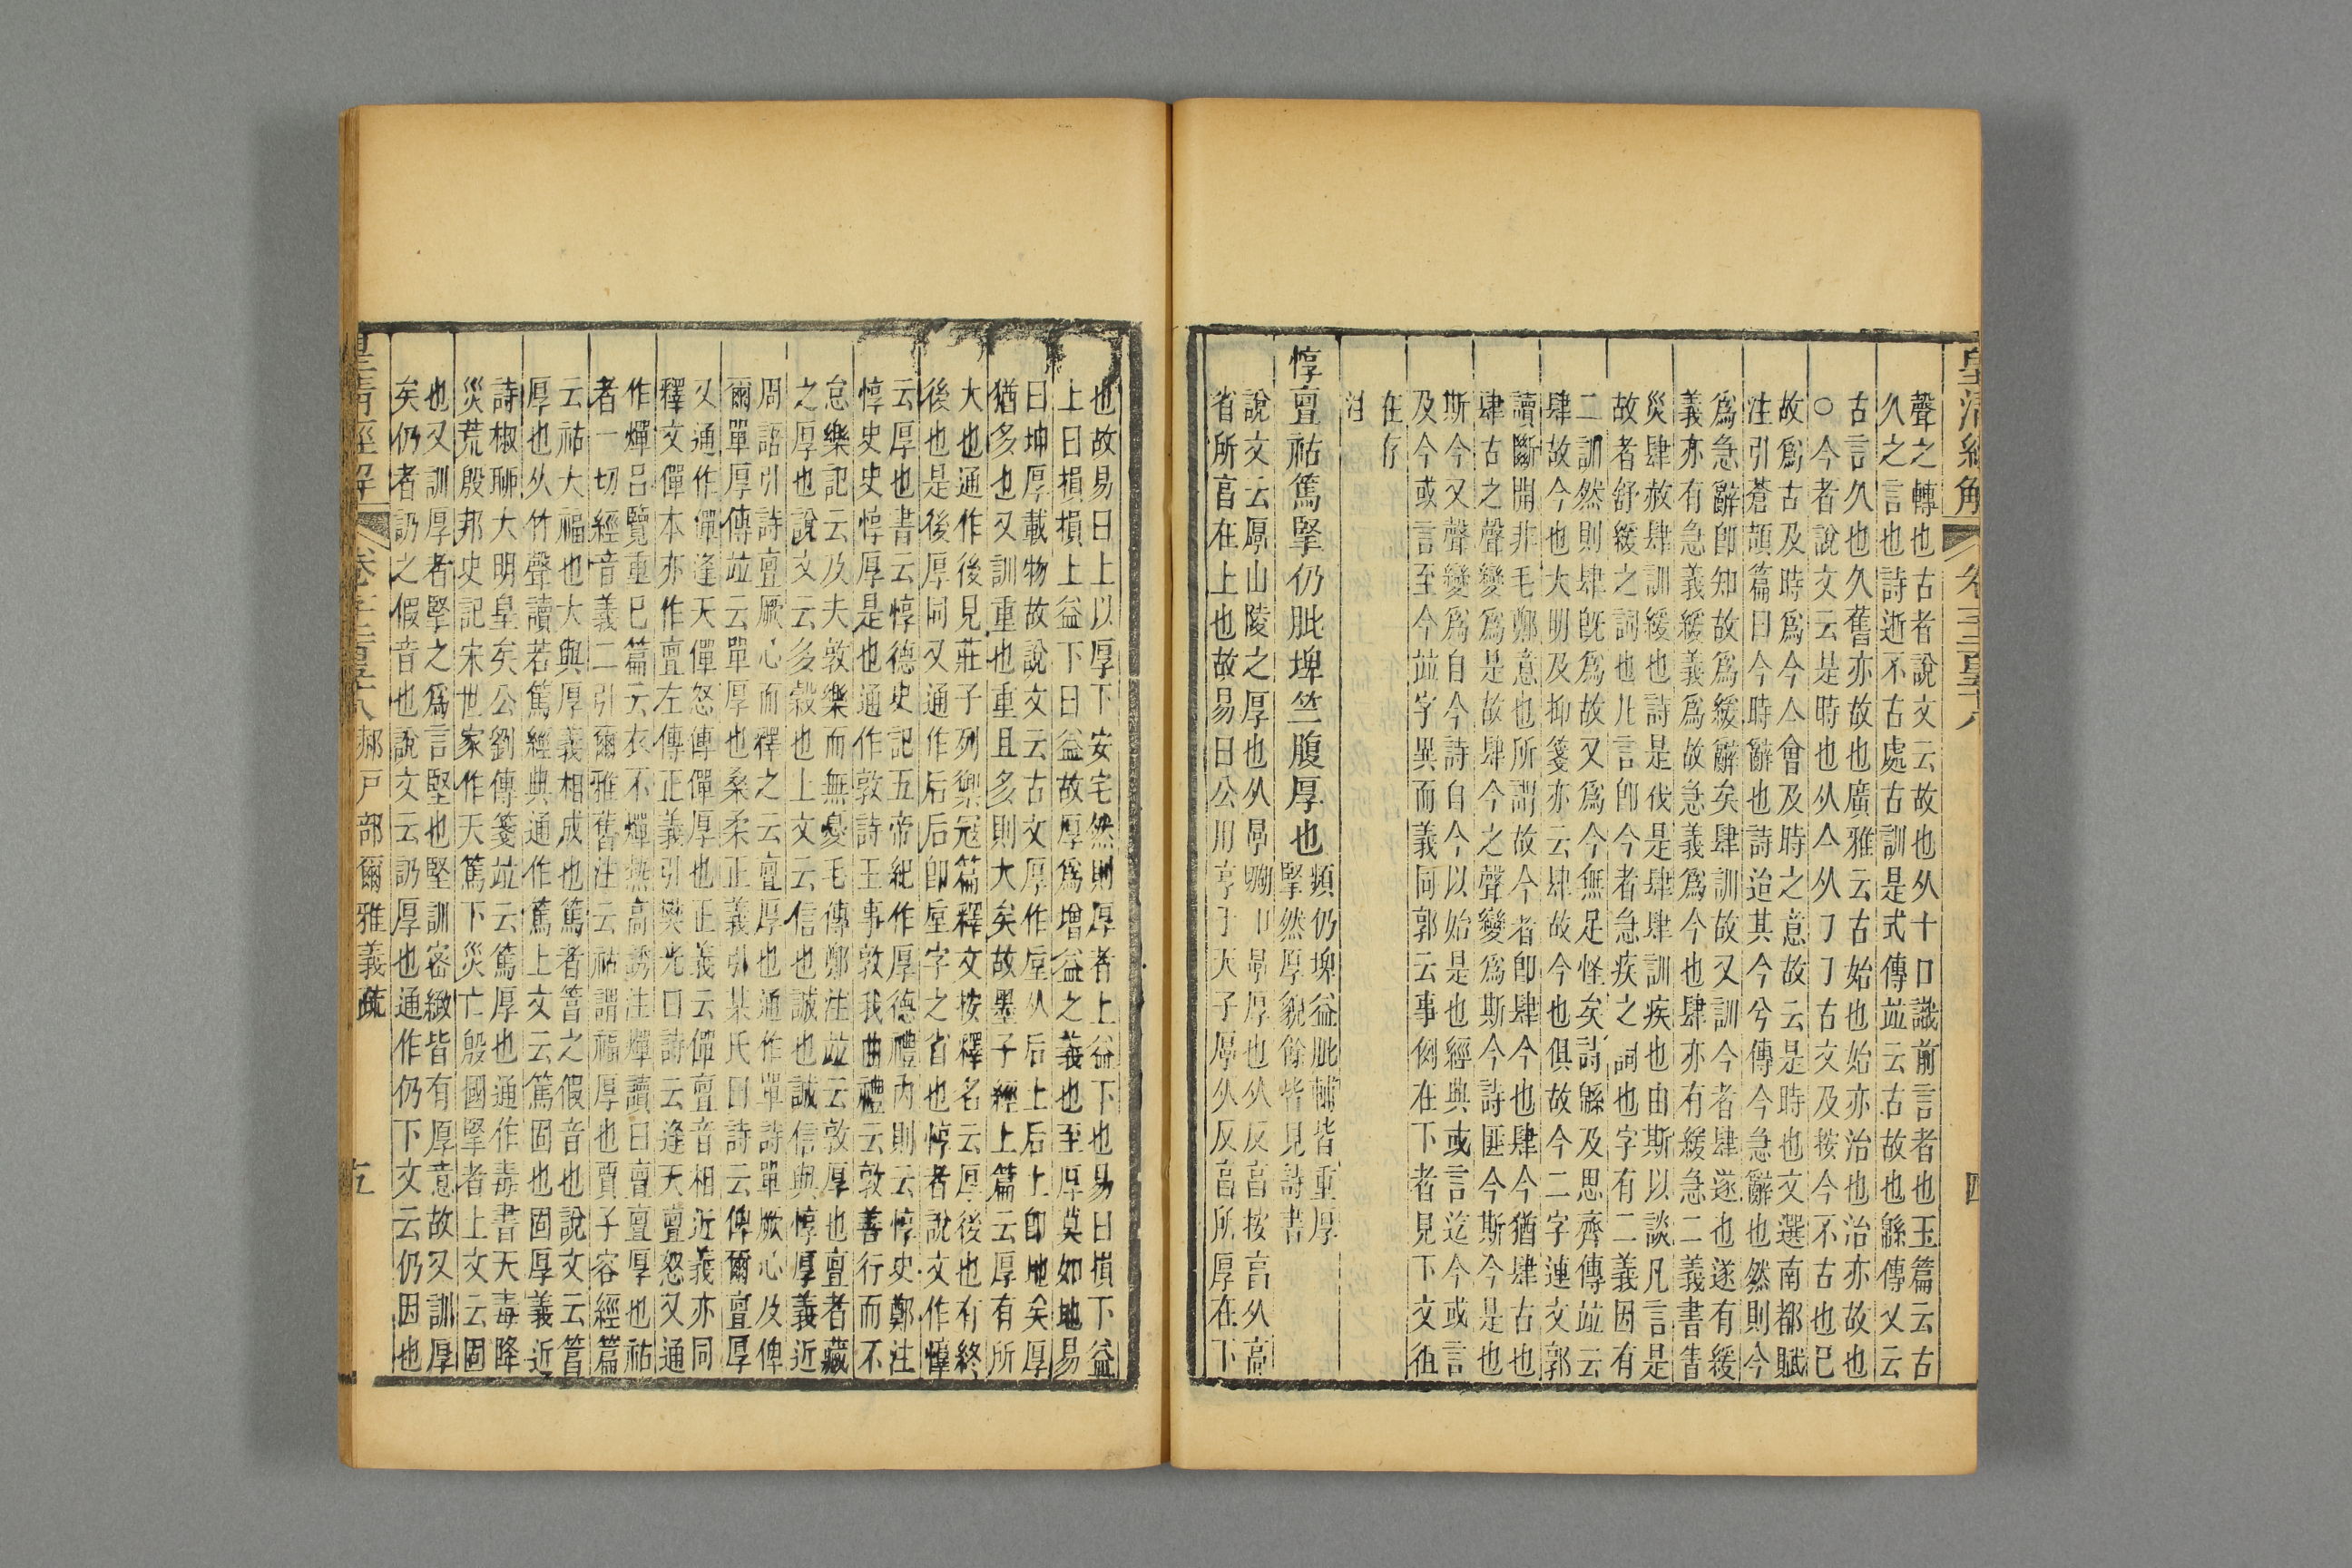 聲之轉也古者說文云故也从十口識前言者也玉篇云古
久之言也詩逝不古處古訓是式傳並云古故也緜傳又云
古言久也久舊亦故也廣雅云古始也始亦治也治亦故也
○今者說文云是時也从亼从㇆㇆古文及按今不古也已
故爲古及時爲今亼會及時之意故云是時也文選南都賦
注引蒼頡篇曰今時辭也詩迨其今兮傳今急辭也然則今
爲急辭卽知故爲緩辭矣肆訓故又訓今者肆遂也遂有緩
義亦有急義緩義爲故急義爲今也肆亦有緩急二義書眚
災肆赦肆訓緩也詩是伐是肆肆訓疾也由斯以談凡言是
故者舒緩之詞也凡言卽今者急疾之詞也字有二義因有
二訓然則肆旣爲故又爲今無足怪矣詩緜及思齊傳並云
肆故今也大明及抑箋亦云肆故今也俱故今二字連文郭
讀斷開非毛鄭意也所謂故今者卽肆今也肆今猶肆古也
肆古之聲變爲是故肆今之聲變爲斯今詩匪今斯今是也
斯今又聲變爲自今詩自今以始是也經典或言迄今或言
及今或言至今並字異而義同郭云事例在下者見下文徂
在存
注
惇亶祜篤掔仍肶埤竺腹厚也
頻仍埤益肶輔皆重厚
掔然厚貌餘皆見詩書
說文云厚山陵之厚也从㫗从厂㫗厚也从反亯按亯从高
省所亯在上也故易曰公用亨于天子㫗从反亯所厚在下
也故易曰上以厚下安宅然則厚者上益下也易曰損下益
上曰損損上益下曰益故厚爲增益之義也至厚莫如地易
曰坤厚載物故說文云古文厚作垕从后土后土卽地矣厚
猶多也又訓重也重且多則大矣故墨子經上篇云厚有所
大也通作後見莊子列禦冠篇釋文按釋名云厚後也有終
後也是後厚同又通作后后卽垕字之省也惇者說文作惇
云厚也書云惇德史記五帝紀作厚德禮內則云惇史鄭注
惇史史惇厚是也通作敦詩王事敦我曲禮云敦善行而不
怠樂記云及夫敦樂而無憂毛傳鄭注並云敦厚也亶者藏
之厚也說文云多穀也上文云信也誠也誠信與惇厚義近
周語引詩亶厥心而釋之云亶厚也通作單詩單厥心及俾
爾單厚傳並云單厚也桑柔正義引某氏曰詩云俾爾亶厚
又通作僤逢天僤怒傳僤厚也正義云僤亶音相近義亦同
釋文僤本亦作亶左傳正義引樊光口詩云逢天亶怒又通
作燀呂覽重已篇云衣不燀熱高誘注燀讀曰亶亶厚也祜
者一切經音義二引爾雅舊注云祜謂福厚也賈子容經篇
云祜大福也大與厚義相成也篤者䈞之假音也說文云䈞
厚也从竹聲讀若篤經典通作篤上文云篤固也固厚義近
詩椒聊大明皇矣公劉傳箋並云篤厚也通作毒書天毒降
災荒殷邦史記宋世家作天篤下災亡殷國掔者上文云固
也又訓厚者掔之爲言堅也堅訓密緻皆有厚意故又訓厚
矣仍者訒之假音也說文云訒厚也通作仍下文云仍因也
皇淸經解
卷千二百五十八
郝戶部爾雅義疏
五